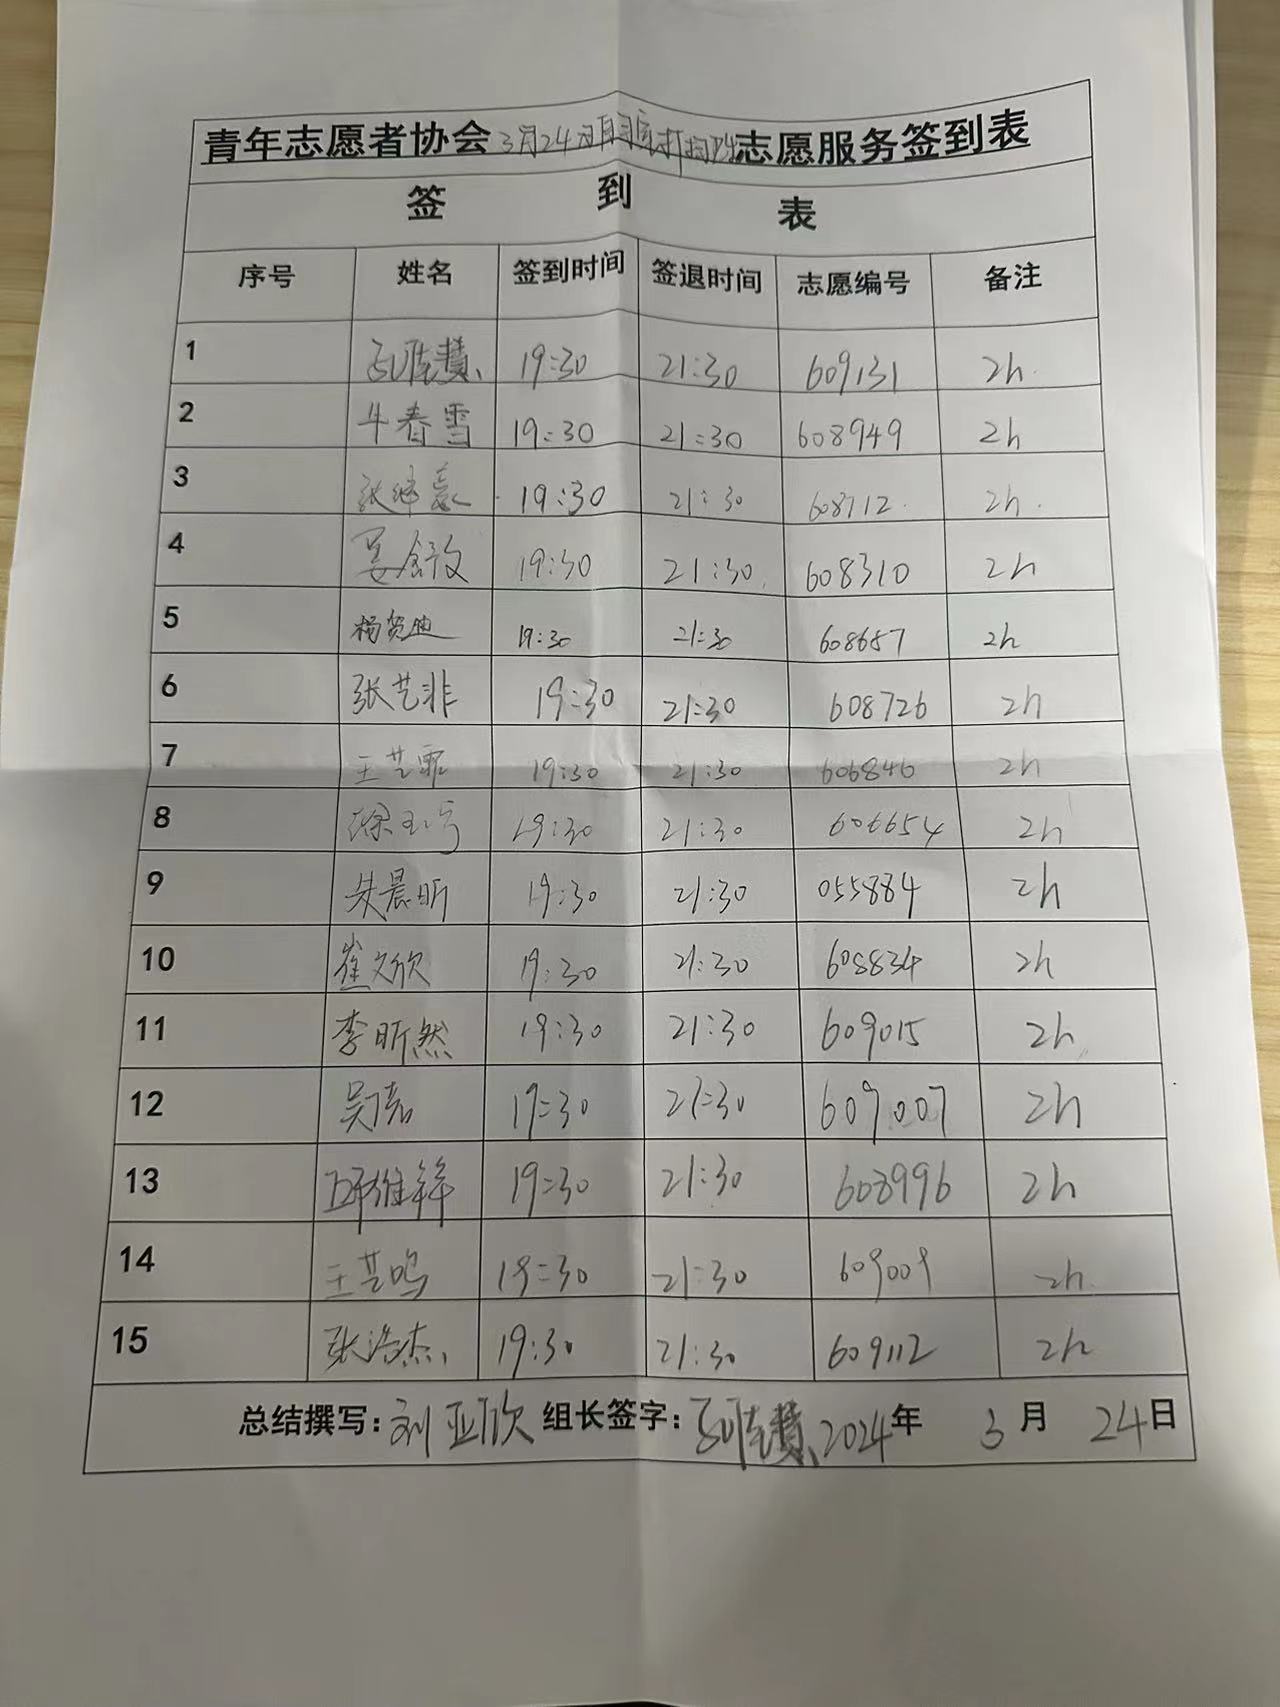 青年志愿者协会3月24日自习室打扫 志愿服务签到表
签 到 表
序号 姓名 签到时间 签退时间 志愿编号 备注
1 19:30 21:30 609131 2h
2 牛春雪 19:30 21:30 608949 2h
3 张继豪 19:30 21:30 608712 2h
4 19:30 21:30 608310 2h
5 杨贺迪 19:30 21:30 608657 2h
6 张艺非 19:30 21:30 608726 2h
7 王艺霏 19:30 21:30 606846 2h
8 19:30 21:30 606654 2h
9 朱晨昕 19:30 21:30 055884 2h
10 崔文欣 19:30 21:30 608834 2h
11 李昕然 19:30 21:30 609015 2h
12 19:30 21:30 609007 2h
13 19:30 21:30 608996 2h
14 王艺鸣 19:30 21:30 609009 2h
15 张浩杰 19:30 21:30 609112 2h
总结撰写:刘亚欣 组长签字: 2024年 3月 24日